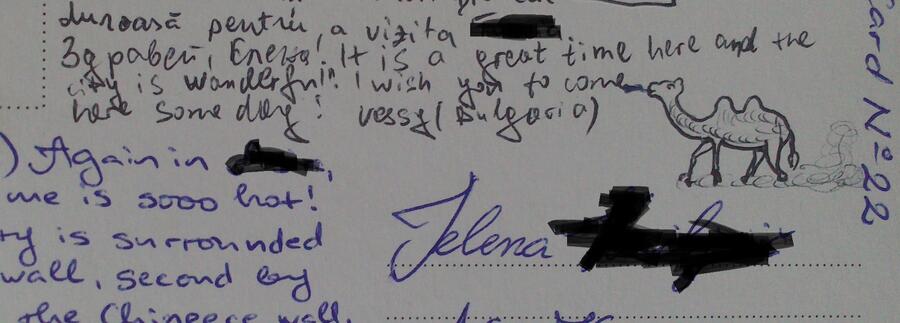 dumoasă pentru, a vizita
Здравей, Елена! It is a great time here and the
city is wanderful! I wish you to come
here some day! Vessy (Bulgaria)
) Again in
me is sooo hot!
ty is surrounded
wall, second by
the Chineece wall.
Jelena
Card № 22